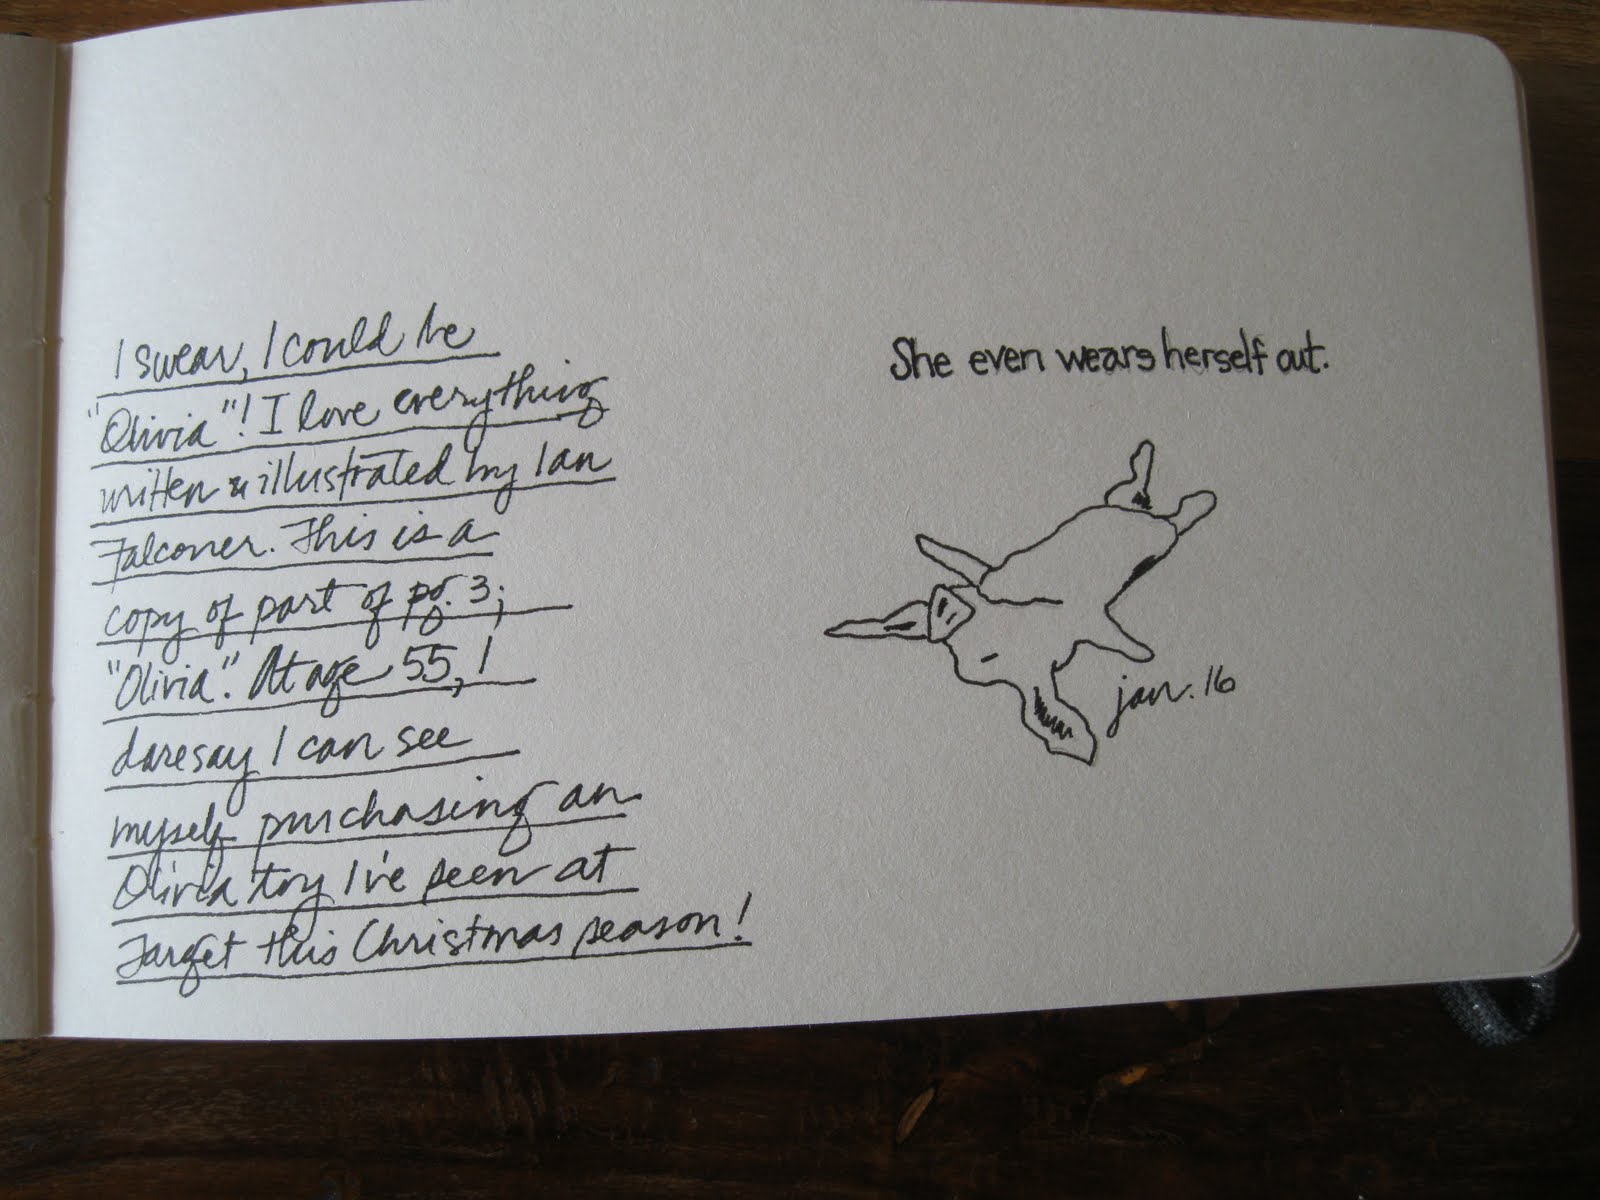 I swear, I could be
"Olivia"! I love everything
written & illustrated by Ian
Falconer. This is a
copy of part of pg. 3;
"Olivia". At age 55, I
daresay I can see
myself purchasing an
Olivia toy I've seen at
Target this Christmas season!
She even wears herself out.
jan. 16